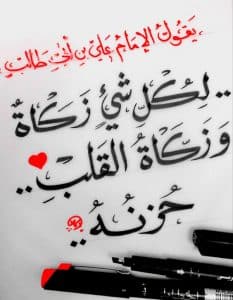 يقول الإمام علي بن أبي طالب
.. لكل شيءٍ زكاةٌ
وزكاةُ القلبِ ..
حُزنُهُ ..